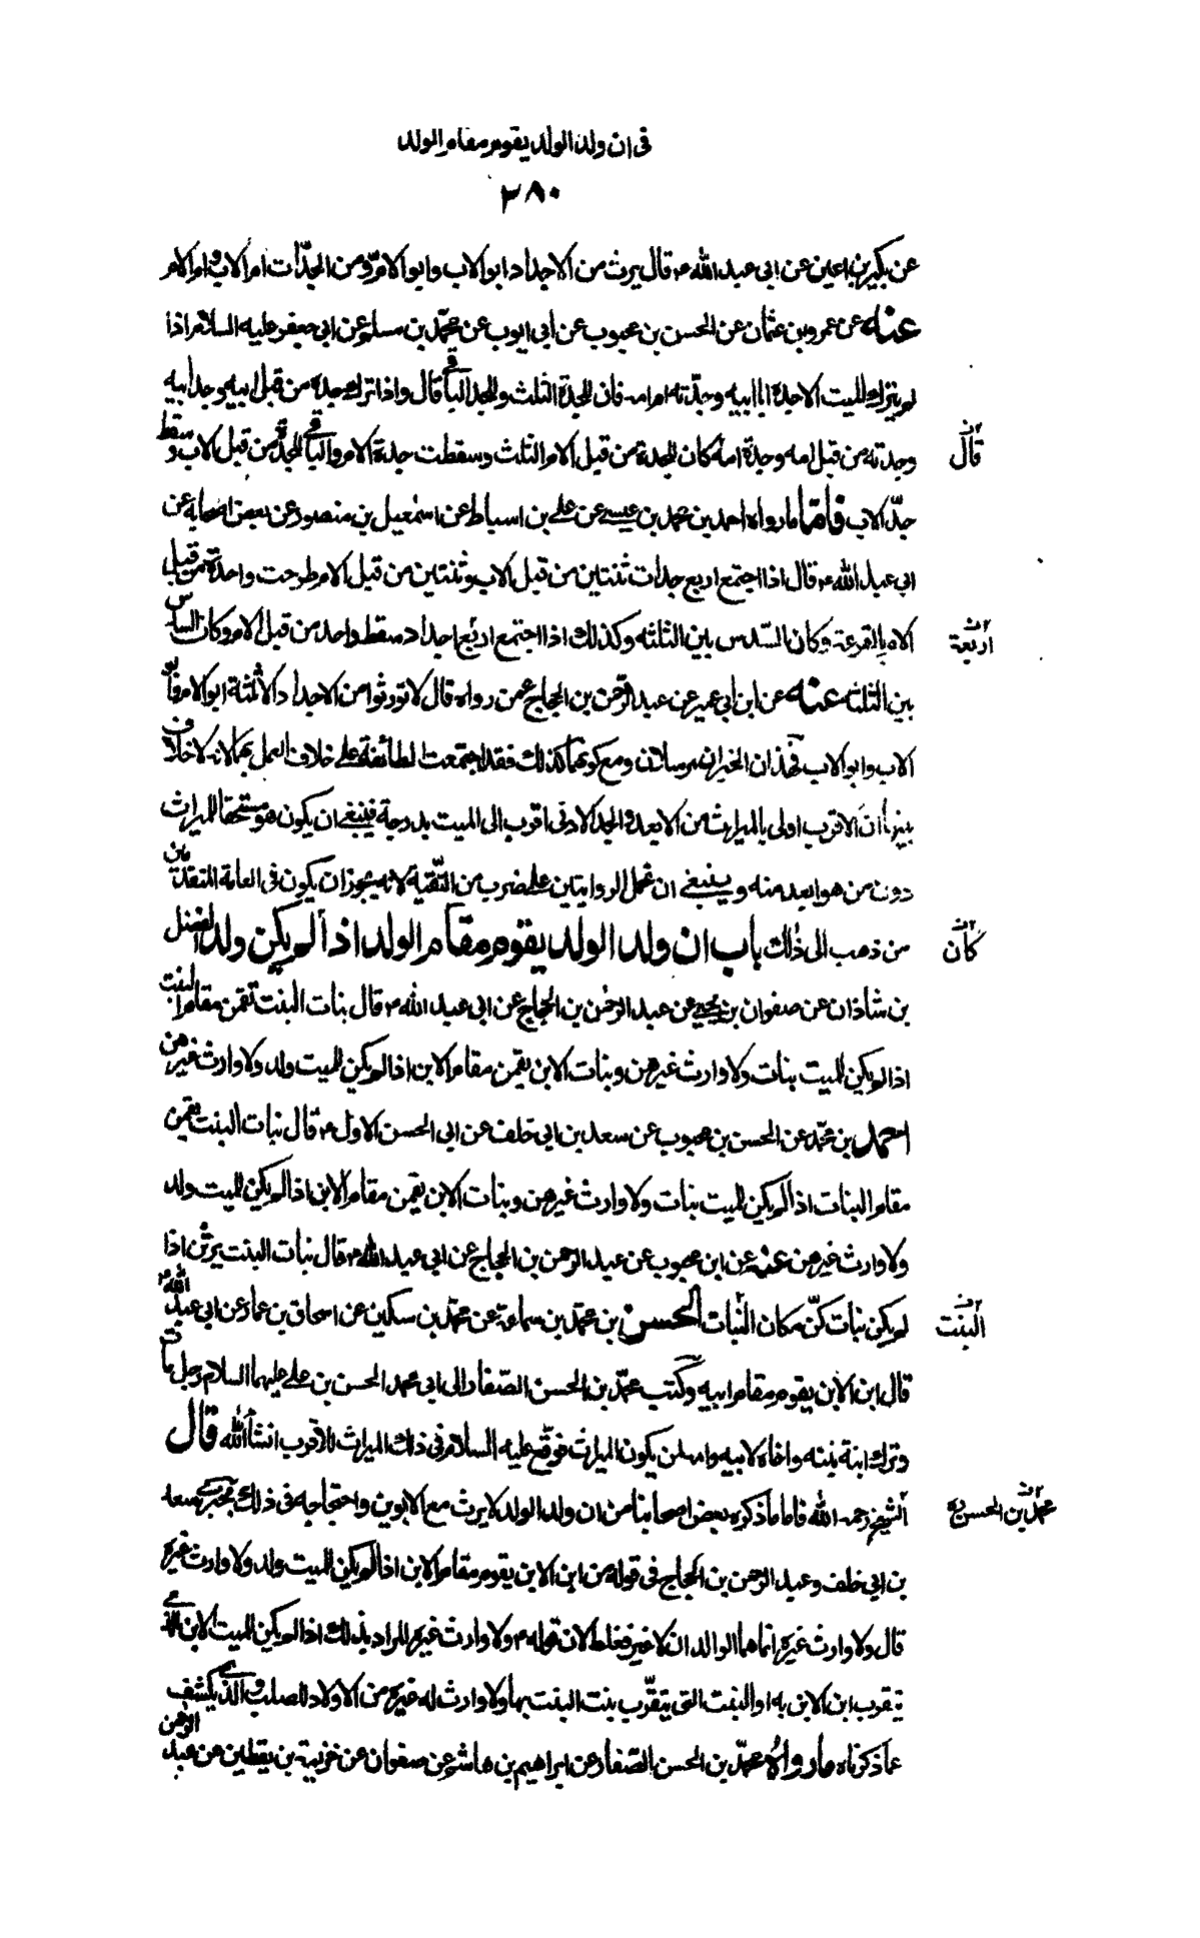 فى ان ولد الولد يقوم مقام الولد
٣٨٠
عن بكير بن اعين عن ابى عبد الله ع قال يرث من الاجداد ابو الاب وابو الام ومن الجدّات ام الاب وام الام
عنه عن عمرو بن عثمان عن الحسن بن محبوب عن أبى ايوب عن محمّد بن مسلم عن ابى جعفر عليه السلام اذا
لم يترك الميت الا جده ابا ابيه وجدّته ام امه فان للجدة الثلث وللجد الباقى قال واذا ترك جده من قبل ابيه وجد ابيه
وجدته من قبل امه وجدة امه كان للجدة من قبل الام الثلث وسقطت جدة الام والباقى للجد من قبل الاب وسقط
قال
جدّ الاب فامّا ما رواه احمد بن محمد بن عيسى عن على بن اسباط عن اسمعيل بن منصور عن بعض اصحابه عن
ابى عبد الله ع قال اذا اجتمع اربع جدات ثنتين من قبل الاب وثنتين من قبل الام طرحت واحدة من قبل
الام بالقرعة وكان السّدس بين الثلثه وكذلك اذا اجتمع اربع اجداد سقط واحد من قبل الام وكان السدس
اربعة
بين الثلثه عنه عن ابن ابى عمير عن عبد الرّحمن بن الحجاج عمن رواه قال لا تورثوا من الاجداد الا ثلثة ابو الام وابو
الاب وابو الاب فهذان الخبران مرسلان ومع كونهما كذلك فقد اجتمعت الطائفة على خلاف العمل بهما لانه لا خلاف
بينها أن الاقرب اولى بالميراث من الابعد والجد الادنى اقرب الى الميت بدرجة فينبغى ان يكون هو مستحقا للميراث
دون من هو ابعد منه وينبغى ان تحمل الروايتين على ضرب من التّقية لانه يجوز ان يكون فى العامة المتقدمين
من ذهب الى ذلك باب ان ولد الولد يقوم مقام الولد اذا لم يكن ولد الفضل
كان
بن شاذان عن صفوان بن يحيى عن عبد الرحمن بن الحجاج عن ابى عبد الله ع قال بنات البنت تقمن مقام البنت
اذا لم يكن للميت بنات ولا وارث غيرهن وبنات الابن يقمن مقام الابن اذا لم يكن للميت ولد ولا وارث غيرهن
احمد بن محمّد عن الحسن بن محبوب عن سعد بن ابى خلف عن ابى الحسن الاول ع قال بنات البنت يقمن
مقام البنات اذا لم يكن للميت بنات ولا وارث غيرهن وبنات الابن يقمن مقام الابن اذا لم يكن للميت ولد
ولا وارث غيرهن عنه عن ابن محبوب عن عبد الرحمن بن الحجاج عن ابى عبد الله ع قال بنات البنت يرثن اذا
لم يكن بنات كنّ مكان البنات الحسن بن محمّد بن سماعة عن محمّد بن سكين عن اسحاق بن عمار عن ابى عبد الله ع
البنت
قال ابن الابن يقوم مقام ابيه وكتب محمّد بن الحسن الصّفار الى ابى محمد الحسن بن على عليهما السلام رجل مات
وترك ابنة بنته واخاه لابيه وامه لمن يكون الميراث فوقّع عليه السلام فى ذلك الميراث للاقرب انشأ الله قال
الشيخ رحمه الله فاما ما ذكره بعض اصحابنا من ان ولد الولد لا يرث مع الابوين واحتجاجه فى ذلك بخبر سعد
محمّد بن الحسن ره
بن ابى خلف وعبد الرحمن بن الحجاج فى قوله من ابن الابن يقوم مقام الابن اذا لم يكن للميت ولد ولا وارث غيره
قال ولا وارث غيره انما هما الوالدان لا غير فغلط لان قوله ع ولا وارث غيره المراد بذلك اذا لم يكن للميت الابن الذى
يتقرب ابن الابن به او البنت التى يتقّرب بنت البنت بها ولا وارث له غيره من الاولاد للصلب والذى يكشف
عما ذكرناه ما رواه محمّد بن الحسن الصّفار عن ابراهيم بن هاشم عن صفوان عن خزيمة بن يقطين عن عبد الرحمن